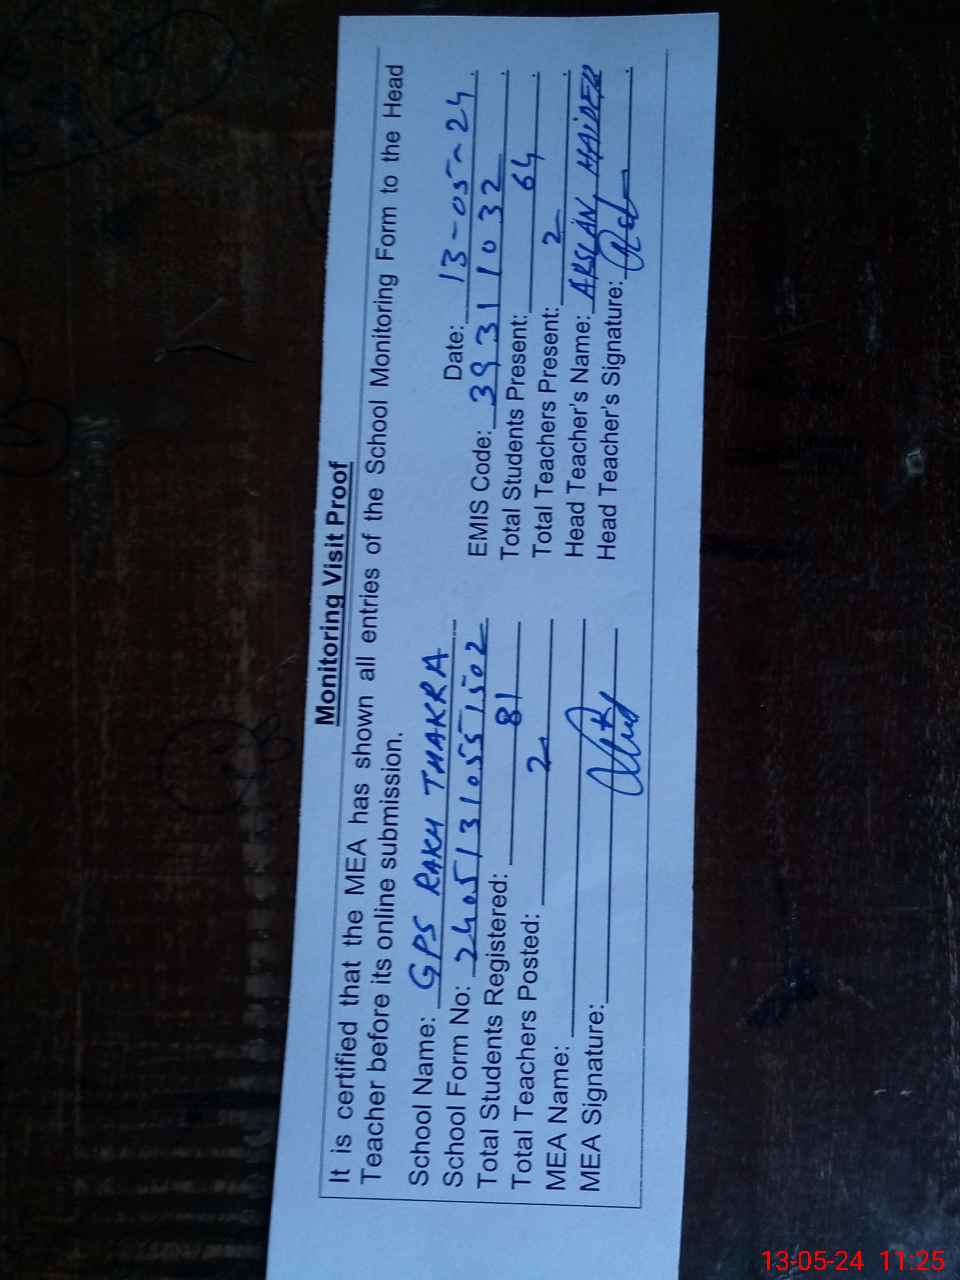 Monitoring Visit Proof
It is certified that the MEA has shown all entries of the School Monitoring Form to the Head
Teacher before its online submission.
School Name: GPS RAKH THAKRA Date: 13-05-24
School Form No: 24051310551502 EMIS Code: 39311032
Total Students Registered: 81 Total Students Present: 64
Total Teachers Posted: 2 Total Teachers Present: 2
MEA Name: Head Teacher's Name: ARSLAN HAIDER
MEA Signature: Head Teacher's Signature:
13-05-24 11:25